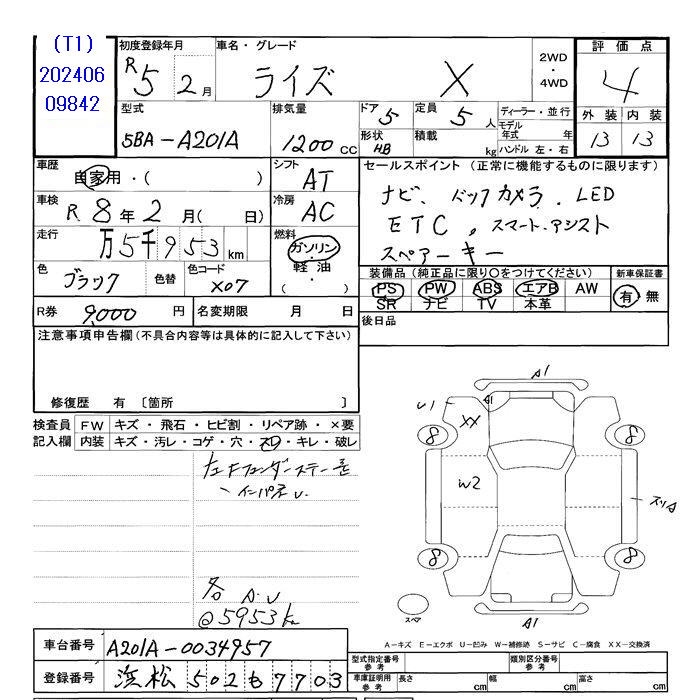 (T1)
202406
09842
初度登録年月
R 5 2 月
車名・グレード
ライズ X
2WD
・
4WD
評価点
4
外装 内装
13 13
型式
5BA-A201A
排気量
1200 CC
ドア 5
形状 HB
定員 5 人
積載 kg
ディーラー・並行
モデル年式 年
ハンドル 左・右
車歴
自家用・( )
シフト
AT
車検
R 8年2月( 日)
冷房
AC
走行
万5千953km
燃料
ガソリン
・
軽油
・
( )
色
ブラック
色替
色コード
X07
セールスポイント (正常に機能するものに限ります)
ナビ、バックカメラ、LED
ETC、スマートアシスト
スペアーキー
装備品 (純正品に限り〇をつけてください)
PS PW ABS エアB AW
SR ナビ TV 本革
新車保証書
有・無
R券 9,000 円
名変期限 月 日
後日品
注意事項申告欄 (不具合内容等は具体的に記入して下さい)
修復歴 有 〔箇所 〕
検査員記入欄
FW キズ・飛石・ヒビ割・リペア跡・×要
内装 キズ・汚レ・コゲ・穴・スレ・キレ・破レ
左Fフェンダーステー
各 A.U
@5953km
A1
U1
XX
A1
8
8
W2
スリA
8
8
スペア
A1
A-キズ E-エクボ U-凹み W-補修跡 S-サビ C-腐食 XX-交換済
車台番号 A201A-0034957
登録番号 浜松 502 も 7703
型式指定番号 参考
類別区分番号 参考
車庫証明用 参考
長さ cm
幅 cm
高さ cm